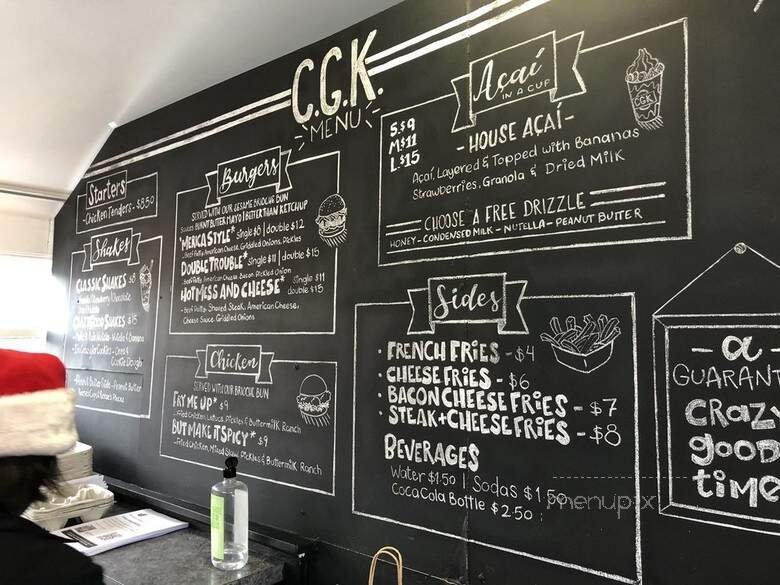 C.G.K.
MENU
Starters
- Chicken Tenders - $8.50
Shakes
CLASSIC SHAKES $8
CRAZY GOOD SHAKES $15
Cookie Dough
Burgers
SERVED WITH OUR SESAME BRIOCHE BUN
'MERICA STYLE* Single $8 | double $12
- Beef Patty, American Cheese, Griddled Onions, Pickles
DOUBLE TROUBLE* Single $11 | double $15
- Beef Patty, American Cheese, Bacon, Pickled Onion
HOT MESS AND CHEESE* Single $11
double $15
- Beef Patty, Shaved Steak, American Cheese,
Cheese Sauce, Griddled Onions
Chicken
SERVED WITH OUR BRIOCHE BUN
FRY ME UP* $9
- Fried Chicken, Lettuce, Pickles & Buttermilk Ranch
BUT MAKE IT SPICY* $9
- Fried Chicken, Mixed Slaw, Pickles & Buttermilk Ranch
Açaí
IN A CUP
CGK
S.$9
M$11
L.$15
- HOUSE AÇAÍ -
Açaí Layered & Topped with Bananas
Strawberries, Granola & Dried Milk
CHOOSE A FREE DRIZZLE
HONEY - CONDENSED MILK - NUTELLA - PEANUT BUTTER
Sides
• FRENCH FRIES - $4
• CHEESE FRIES - $6
• BACON CHEESE FRIES - $7
• STEAK+CHEESE FRIES - $8
BEVERAGES
Water $1.50 | Sodas $1.50
Coca Cola Bottle $2.50
- a -
GUARANT
CRaZ
gOOD
time
menupix